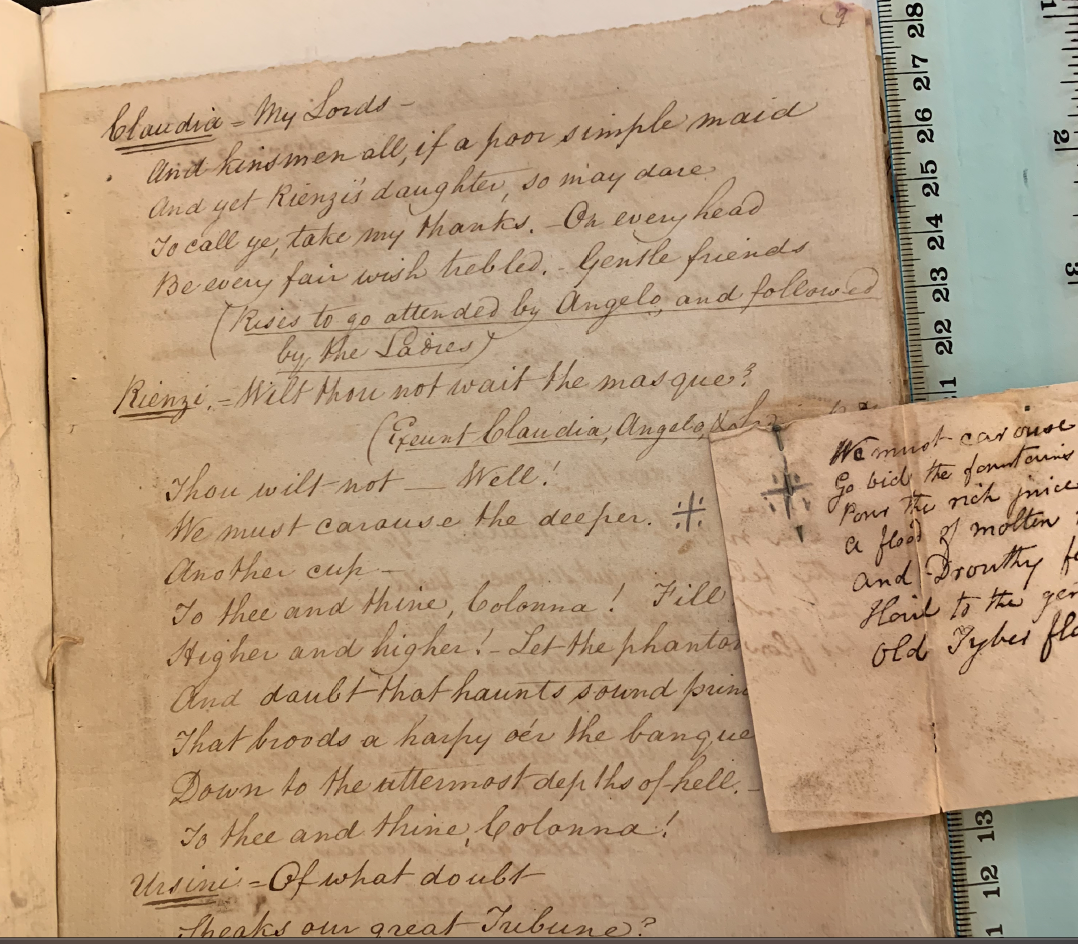 9
Claudia = My Lords -
And kinsmen all, if a poor simple maid
And yet Rienzi's daughter, so may dare
To call ye, take my thanks. - On every head
Be every fair wish trebled. - Gentle friends
(Rises to go attended by Angelo, and followed
by the Ladies)
Rienzi. - Wilt thou not wait the masque?
(Exeunt Claudia, Angelo,
Thou wilt not - Well!
We must carouse the deeper. #
Another cup -
To thee and thine, Colonna! Fill
Higher and higher! - Let the
And daubt that haunts sound
That broods a harpy oér the
Down to the uttermost depths of hell. -
To thee and thine, Colonna!
Ursini = Of what doubt
Speaks our great Tribune?
# We must carouse
Go bid the fountains
Pour the rich juice
a flood of molten
and Drouthy
Hail to the
Old Tyber
28
27
26
25
24
23
22
1
13
12
1
1
2
3